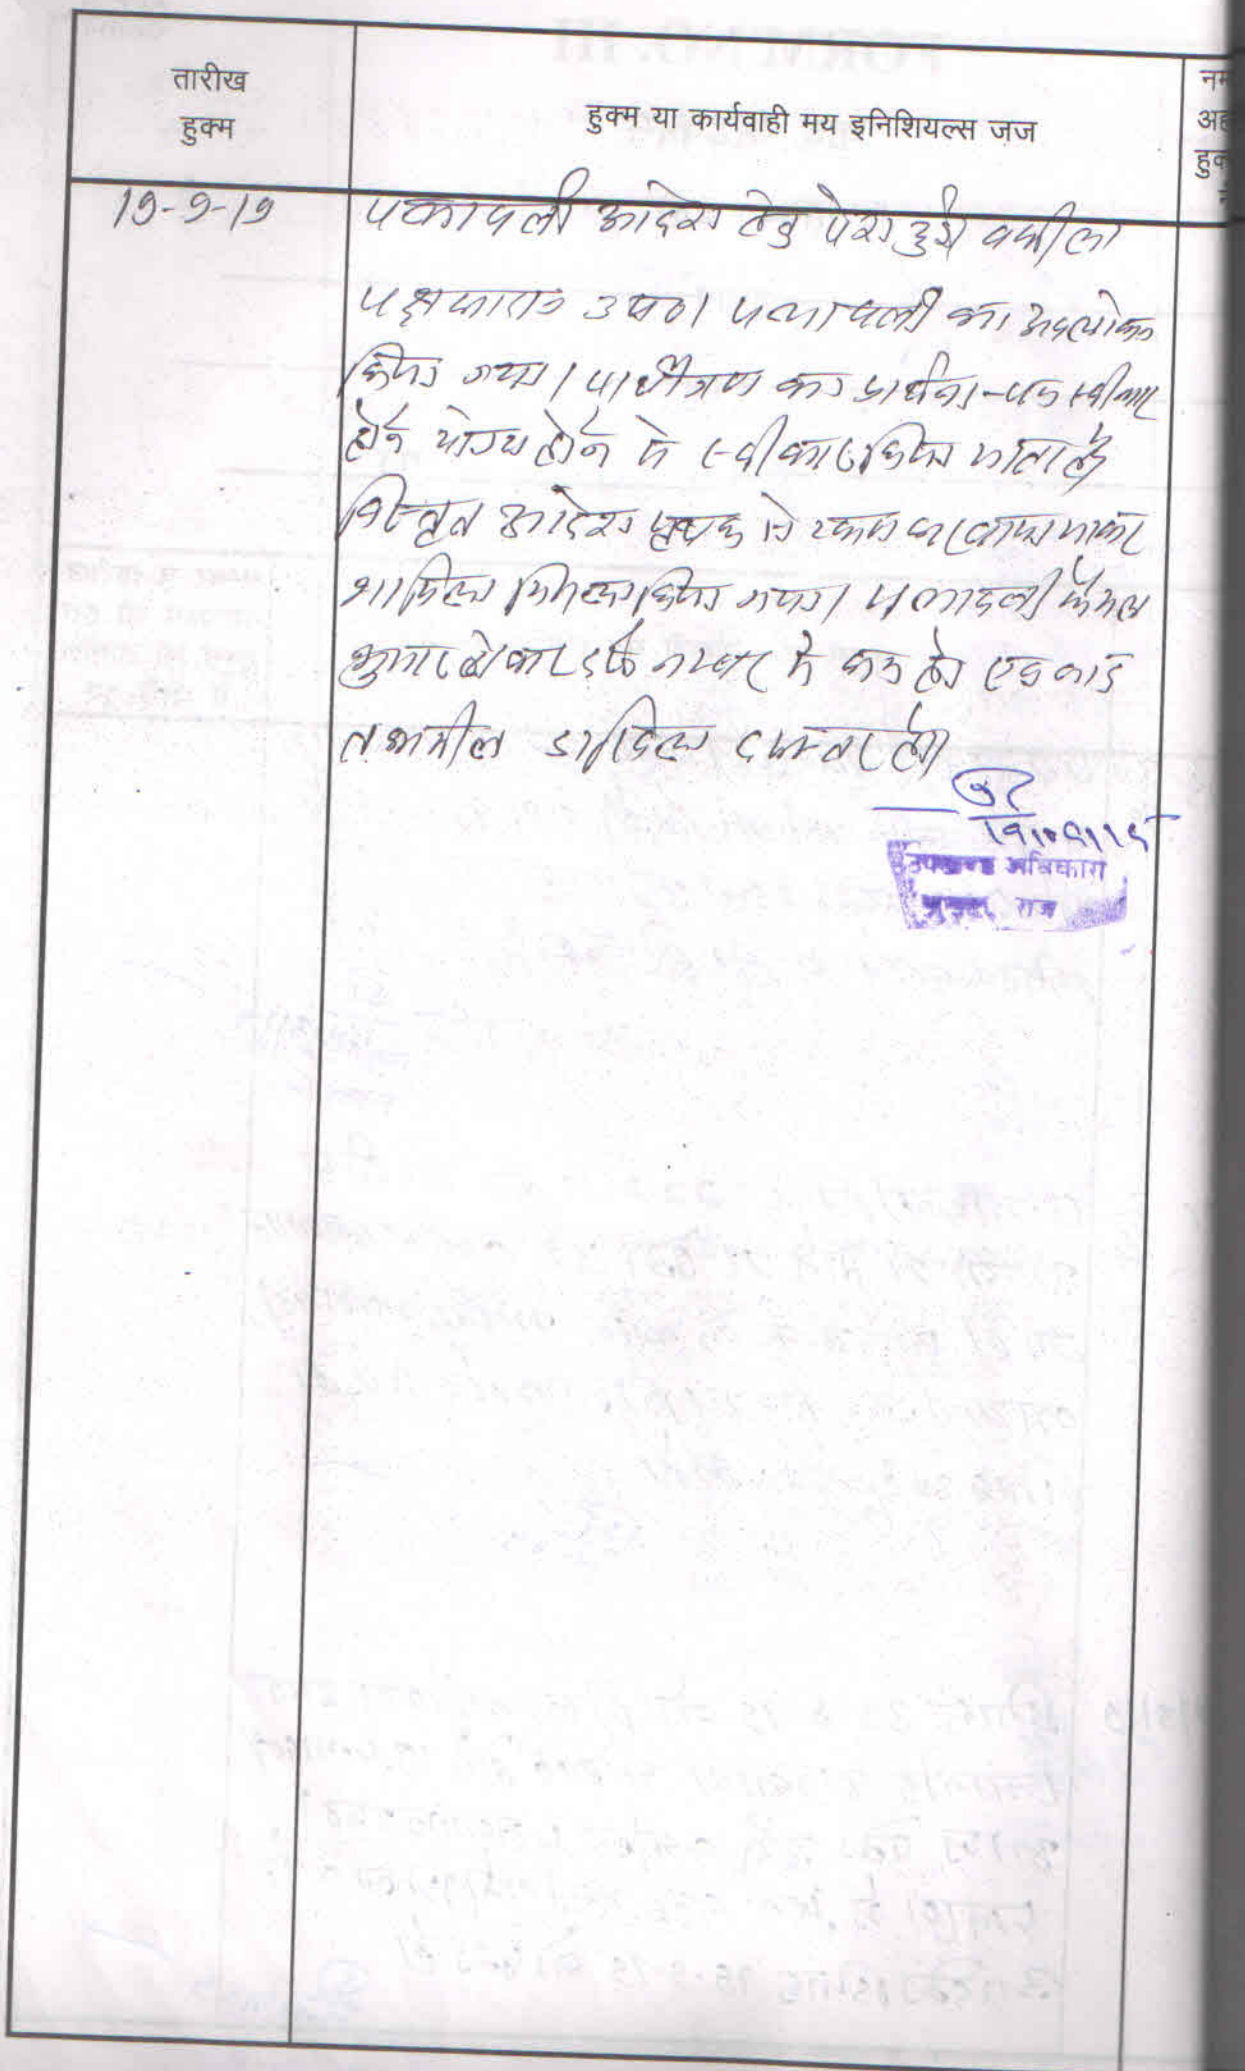 तारीख
हुक्म
हुक्म या कार्यवाही मय इनिशियल्स जज
19-9-19
पत्रावली आदेश हेतु पेश हुई वकील
पक्षकारान उप०। पत्रावली का अवलोकन
किया गया। प्रार्थीगण का प्रार्थना-पत्र स्वीकार
होने योग्य होने से स्वीकार किया जाता है
विस्तृत आदेश पृथक से टंकण करवाया जाकर
शामिल मिसल किया गया। पत्रावली फैसल
शुमार होकर दर्ज नम्बर से कम हो
दाखिल दफ्तर हो।
उपखण्ड अधिकारी
राज